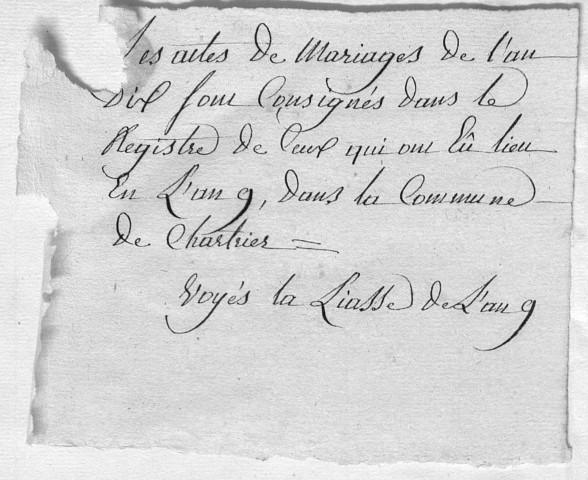 Les actes de Mariages de l'an
Dix sont Consignés dans le
Registre de Ceux qui ont Eû lieu
En L'an 9, dans la Commune
de Chartrier =
Voyés la Liasse de L'an 9